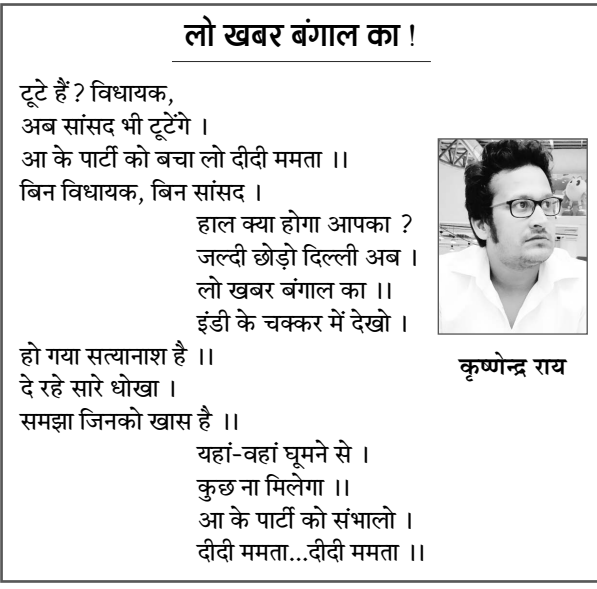 लो खबर बंगाल का !
टूटे हैं ? विधायक,
अब सांसद भी टूटेंगे ।
आ के पार्टी को बचा लो दीदी ममता ।।
बिन विधायक, बिन सांसद ।
हाल क्या होगा आपका ?
जल्दी छोड़ो दिल्ली अब ।
लो खबर बंगाल का ।।
इंडी के चक्कर में देखो ।
हो गया सत्यानाश है ।।
दे रहे सारे धोखा ।
समझा जिनको खास है ।।
यहां-वहां घूमने से ।
कुछ ना मिलेगा ।।
आ के पार्टी को संभालो ।
दीदी ममता...दीदी ममता ।।
कृष्णेन्द्र राय